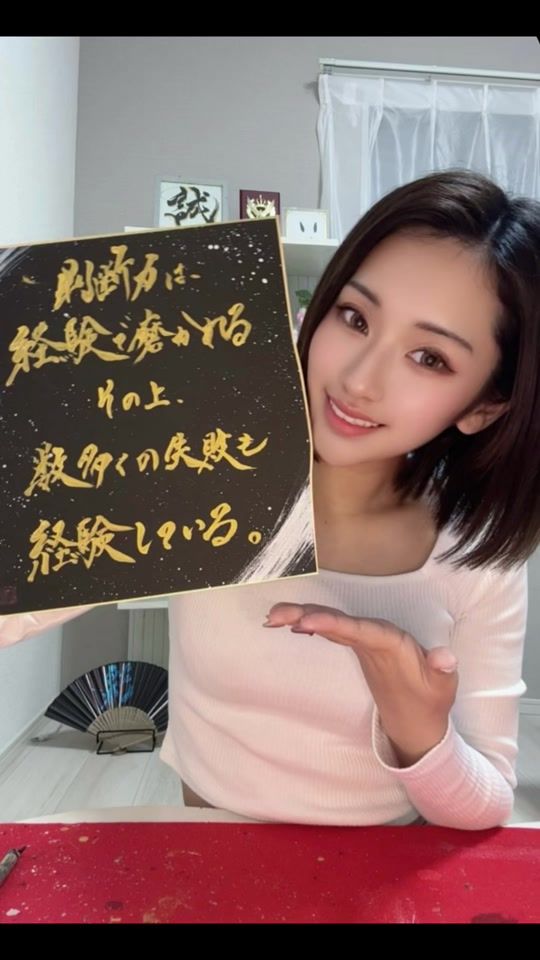 誠
判断力は、
経験で磨かれる
その上、
数多くの失敗も
経験している。